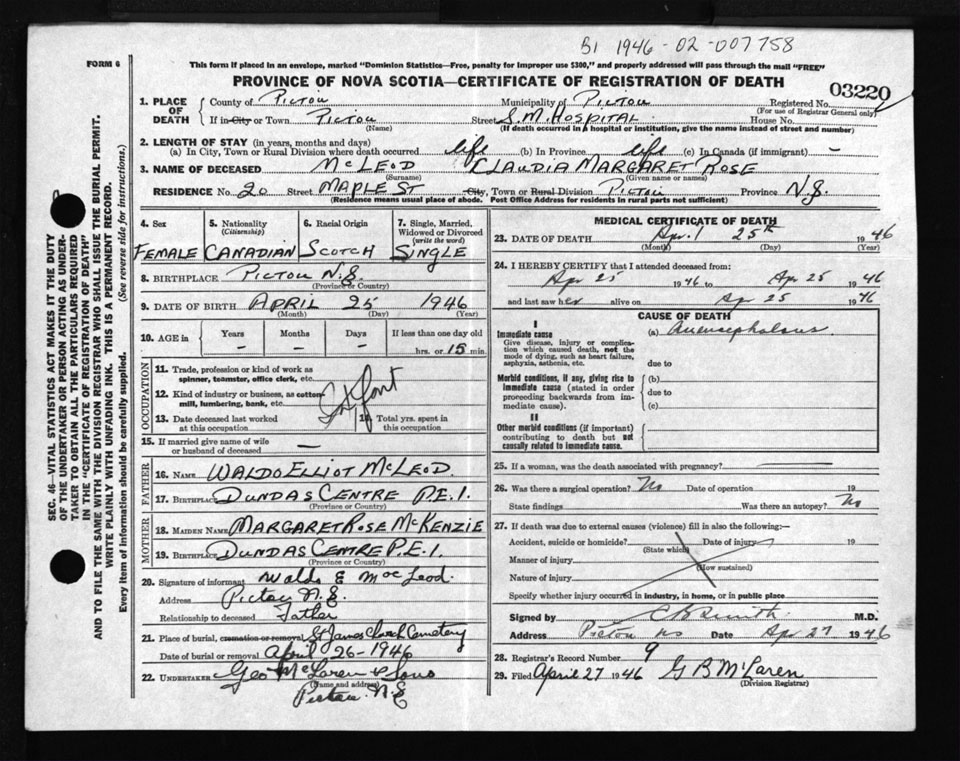 B1 1946-02-007758
FORM 6
This form if placed in an envelope, marked "Dominion Statistics—Free, penalty for improper use $300," and properly addressed will pass through the mail "FREE"
PROVINCE OF NOVA SCOTIA—CERTIFICATE OF REGISTRATION OF DEATH
03220
1. PLACE OF DEATH
County of PICTOU Municipality of PICTOU Registered No.
(For use of Registrar General only)
If in City or Town PICTOU Street S.M. HOSPITAL House No.
(Name) (If death occurred in a hospital or institution, give the name instead of street and number)
2. LENGTH OF STAY (in years, months and days)
(a) In City, Town or Rural Division where death occurred life (b) In Province life (c) In Canada (if immigrant) —
3. NAME OF DECEASED McLEOD CLAUDIA MARGARET ROSE
(Surname) (Given name or names)
RESIDENCE No. 20 Street MAPLE ST City, Town or Rural Division PICTOU Province N.S.
(Residence means usual place of abode. Post Office Address for residents in rural parts not sufficient)
4. Sex
FEMALE
5. Nationality
(Citizenship)
CANADIAN
6. Racial Origin
SCOTCH
7. Single, Married,
Widowed or Divorced
(write the word)
SINGLE
8. BIRTHPLACE PICTOU N.S.
(Province or Country)
9. DATE OF BIRTH APRIL 25 1946
(Month) (Day) (Year)
10. AGE in
Years Months Days If less than one day old
— — — hrs. or 15 min.
OCCUPATION
11. Trade, profession or kind of work as
spinner, teamster, office clerk, etc.
12. Kind of industry or business, as cotton-
mill, lumbering, bank, etc.
Infant
13. Date deceased last worked
at this occupation
14. Total yrs. spent in
this occupation
15. If married give name of wife
or husband of deceased —
FATHER
16. NAME WALDO ELLIOT McLEOD
17. BIRTHPLACE DUNDAS CENTRE P.E.I.
(Province or Country)
MOTHER
18. MAIDEN NAME MARGARET ROSE McKENZIE
19. BIRTHPLACE DUNDAS CENTRE P.E.I.
(Province or Country)
20. Signature of informant Waldo E MacLeod.
Address Pictou N.S.
Relationship to deceased Father
21. Place of burial, cremation or removal St James Church Cemetery
Date of burial or removal April 26-1946
22. UNDERTAKER Geo McLaren & Sons
(Name and address)
Pictou N.S
MEDICAL CERTIFICATE OF DEATH
23. DATE OF DEATH April 25th 1946
(Month) (Day) (Year)
24. I HEREBY CERTIFY that I attended deceased from:
Apr 25 1946 to Apr 25 1946
and last saw her alive on Apr 25 1946
CAUSE OF DEATH
I
Immediate cause
Give disease, injury or complica-
tion which caused death, not the
mode of dying, such as heart failure,
asphyxia, asthenia, etc.
(a) Anencephalous
due to
Morbid conditions, if any, giving rise to
immediate cause (stated in order
proceeding backwards from im-
mediate cause).
(b)
due to
(c)
II
Other morbid conditions (if important)
contributing to death but not
causally related to immediate cause.
25. If a woman, was the death associated with pregnancy? —
26. Was there a surgical operation? No Date of operation 19
State findings Was there an autopsy? No
27. If death was due to external causes (violence) fill in also the following:—
Accident, suicide or homicide? Date of injury 19
(State which)
Manner of injury
(How sustained)
Nature of injury
Specify whether injury occurred in industry, in home, or in public place
Signed by C B Smith M.D.
Address Pictou NS Date Apr 27 1946
28. Registrar's Record Number 9
29. Filed April 27 1946 G B McLaren
(Division Registrar)
SEC. 46—VITAL STATISTICS ACT MAKES IT THE DUTY
OF THE UNDERTAKER OR PERSON ACTING AS UNDER-
TAKER TO OBTAIN ALL THE PARTICULARS REQUIRED
IN THE "CERTIFICATE OF REGISTRATION OF DEATH"
AND TO FILE THE SAME WITH THE DIVISION REGISTRAR WHO SHALL ISSUE THE BURIAL PERMIT.
WRITE PLAINLY WITH UNFADING INK. THIS IS A PERMANENT RECORD.
Every item of information should be carefully supplied. (See reverse side for instructions.)